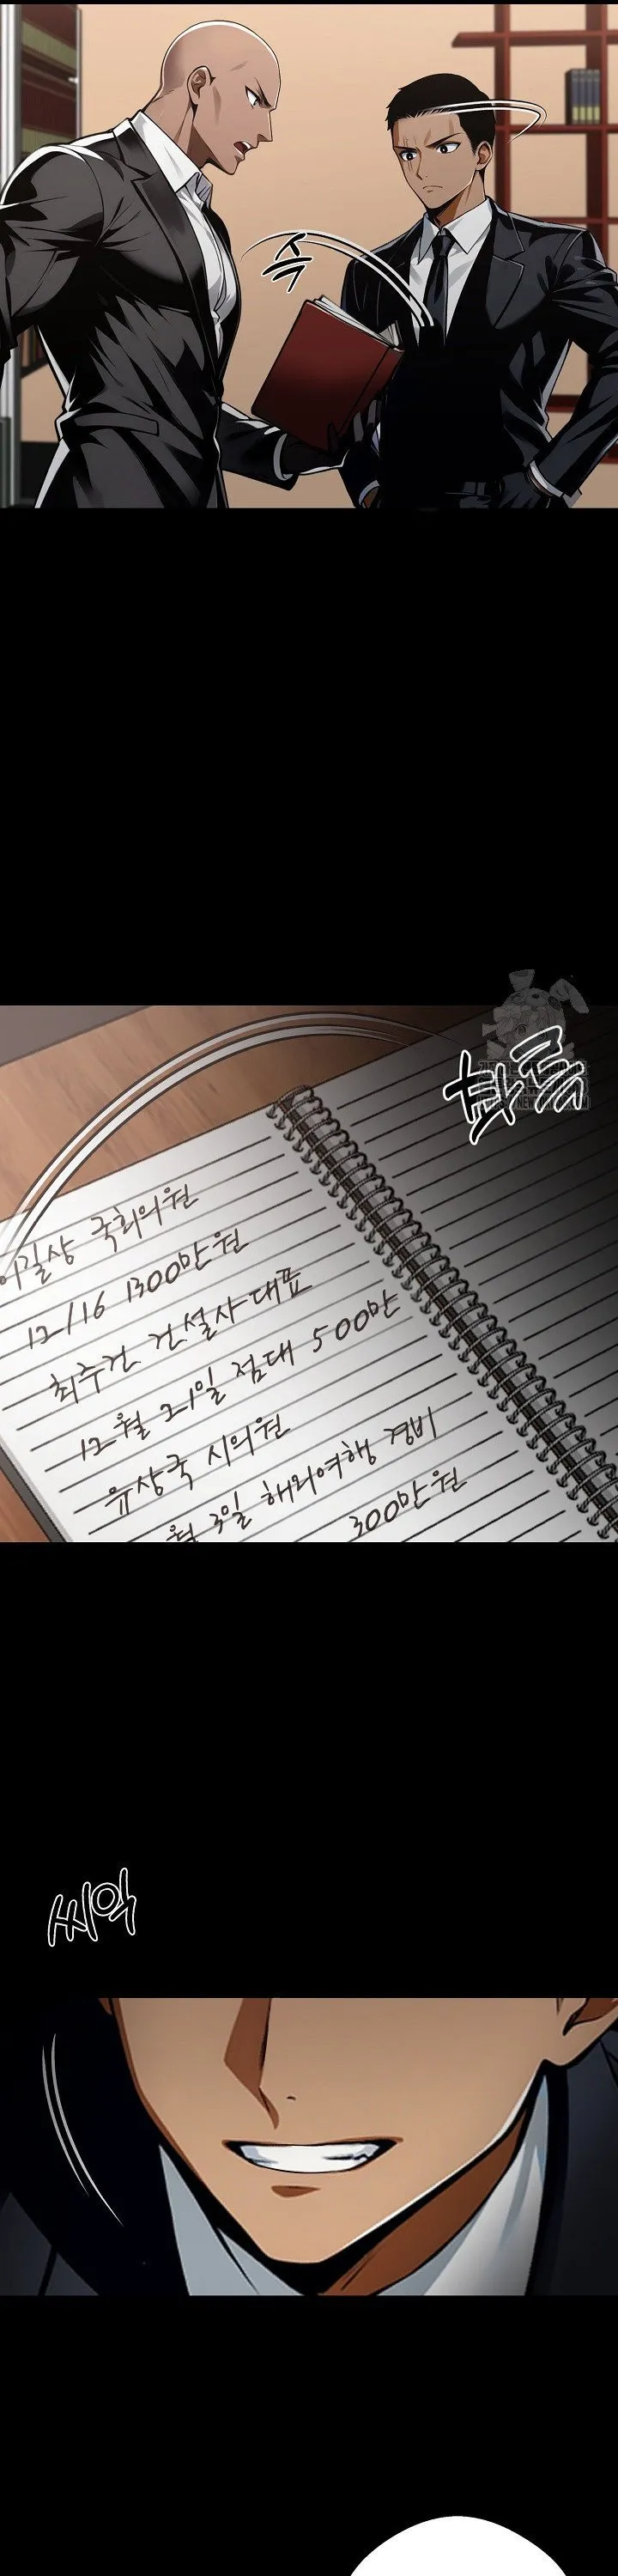 슥
촤륵
이길상 국회의원
12/16 1300만원
최주건 건설사대표
12월 21일 접대 500만
유상국 시의원
월 3일 해외여행 경비
300만원
씨익